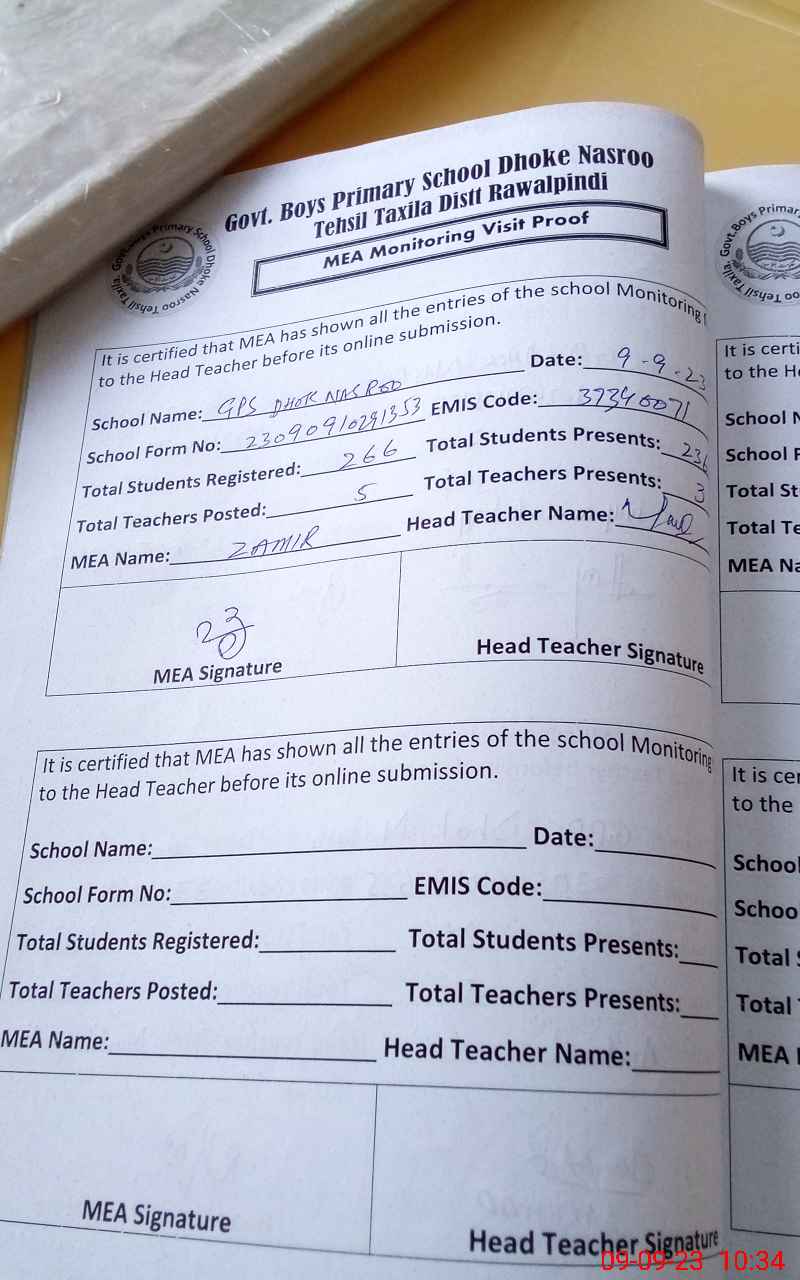 Govt. Boys Primary School Dhoke Nasroo
Tehsil Taxila Distt Rawalpindi
MEA Monitoring Visit Proof
Govt. Boys Primary School Dhoke Nasroo Tehsil Taxila
It is certified that MEA has shown all the entries of the school Monitoring
to the Head Teacher before its online submission.
Date: 9-9-23
School Name: GPS DHOK NASROO
School Form No: 23090910291353 EMIS Code: 37340071
Total Students Registered: 266 Total Students Presents: 236
Total Teachers Posted: 5 Total Teachers Presents: 3
MEA Name: ZAMIR Head Teacher Name:
MEA Signature Head Teacher Signature
It is certified that MEA has shown all the entries of the school Monitoring
to the Head Teacher before its online submission.
School Name: Date:
School Form No: EMIS Code:
Total Students Registered: Total Students Presents:
Total Teachers Posted: Total Teachers Presents:
MEA Name: Head Teacher Name:
MEA Signature Head Teacher Signature
Govt. Boys Primar
It is certi
to the H
School N
School F
Total St
Total Te
MEA Na
It is cer
to the
School
Schoo
Total
Total
MEA
09-09-23 10:34